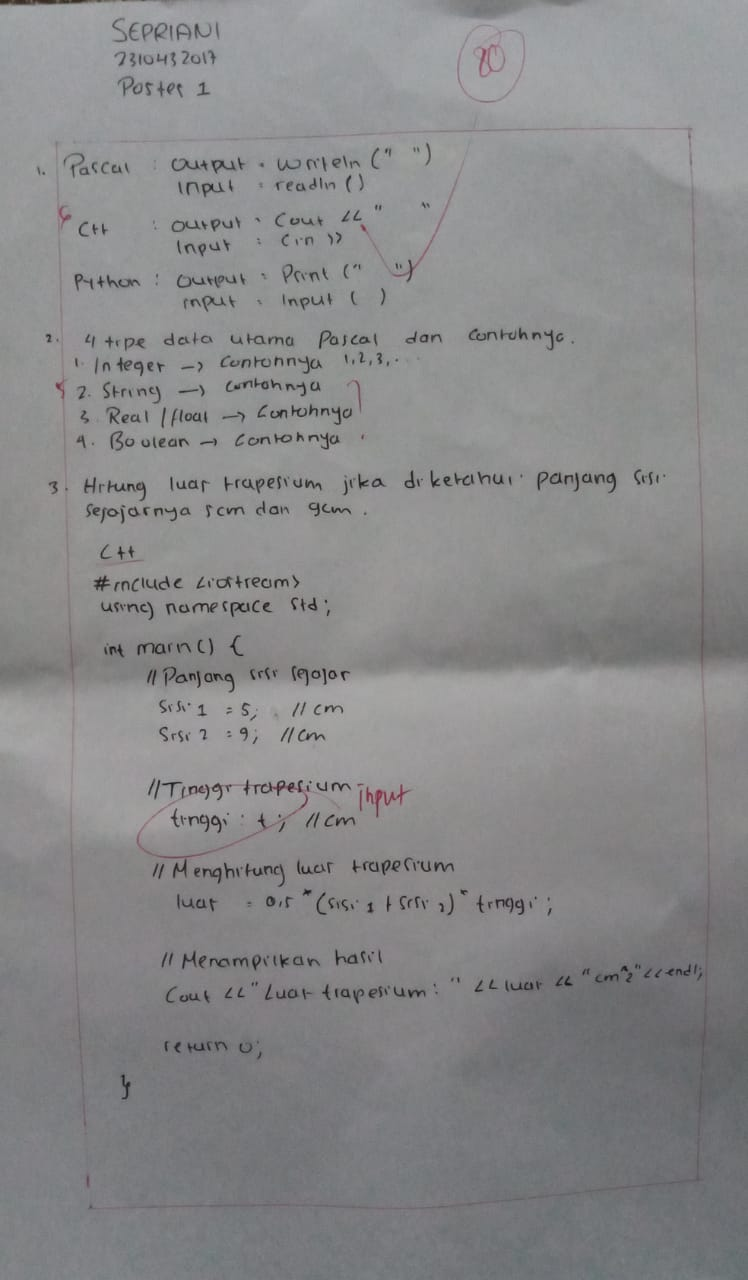 SEPRIANI
2310432017
Postes 1
80
1. Pascal : Output : writeln (" ")
Input : readln ()
C++ : Output : Cout << " "
Input : Cin >>
Python : Output : Print (" ")
Input : Input ( )
2. 4 tipe data utama Pascal dan Contohnya.
1. Integer -> Contohnya 1,2,3,..
2. String -> Contohnya
3. Real / float -> Contohnya
4. Boolean -> Contohnya
3. Hitung luas trapesium jika diketahui panjang sisi
sejajarnya 5cm dan 9cm.
C++
#include <iostream>
using namespace std;
int main() {
// Panjang sisi sejajar
Sisi 1 = 5; // cm
Sisi 2 = 9; // cm
// Tinggi trapesium input
tinggi : t; // cm
// Menghitung luas trapesium
luas = 0,5 * (sisi 1 + sisi 2) * tinggi;
// Menampilkan hasil
Cout << "Luas trapesium: " << luas << "cm^2" << endl;
return 0;
}